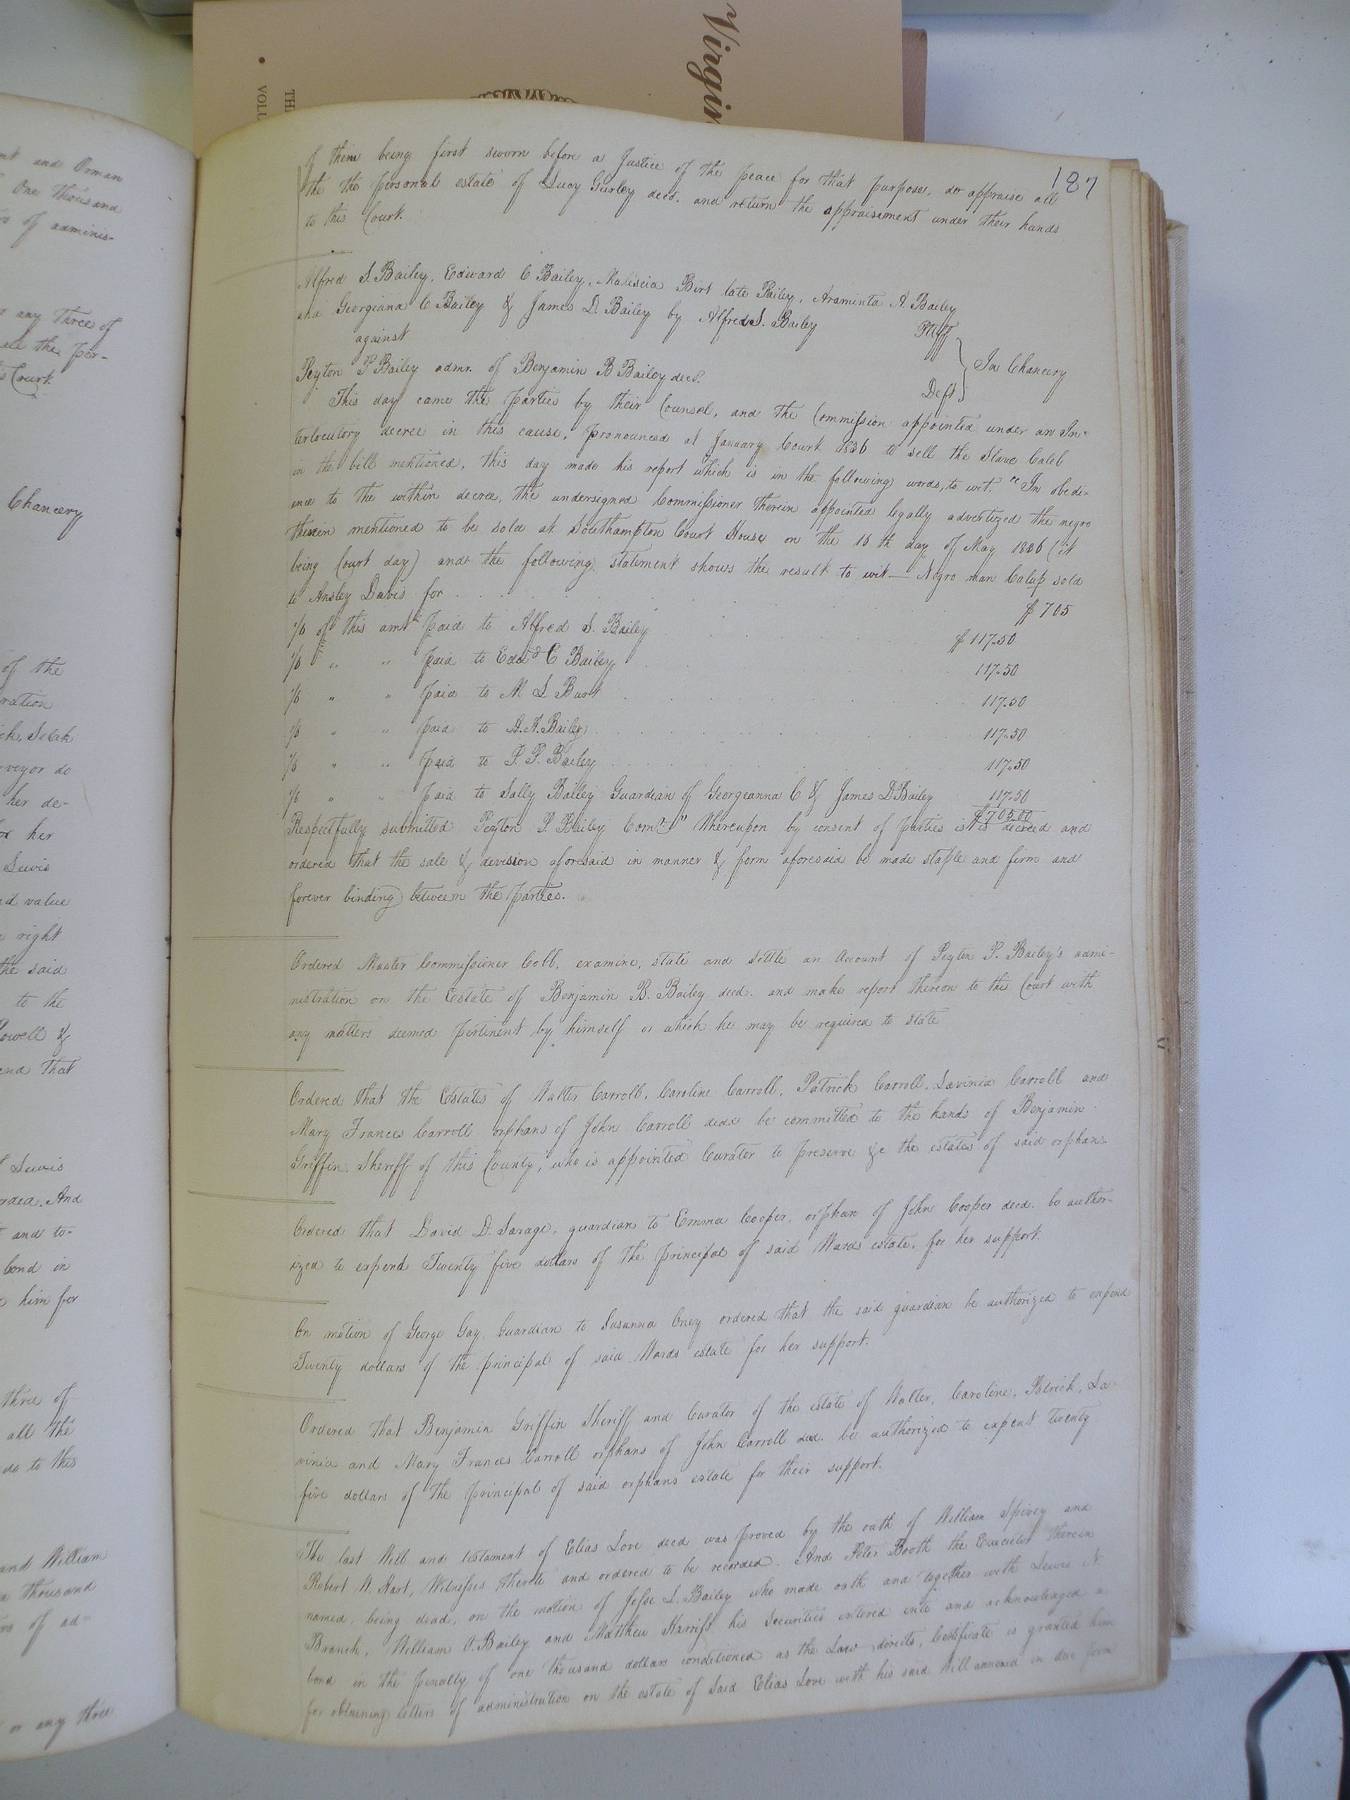 Virgin
TH
VOLU
187
of them being first sworn before a Justice of the peace for that purpose, do appraise all
the the personal estate of Lucy Gurley decd. and return the appraisement under their hands
to this Court.
Alfred S. Bailey, Edward C Bailey, Maliscia Birt late Bailey, Araminta A. Bailey
and Georgiana C Bailey & James D. Bailey by Alfred S. Bailey Pltff
against
In Chancery
Peyton P Bailey admr. of Benjamin B Bailey decd. Deft
This day came the Parties by their Counsel, and the Commission appointed under an In-
terlocutory decree in this cause, pronounced at January Court 1836 to sell the Slave Caleb
in the bill mentioned, this day made his report which is in the following words, to wit. "In obedi-
ence to the within decree, the undersigned Commissioner therein appointed legally advertized the negro
therein mentioned to be sold at Southampton Court House on the 16th day of May 1836 (it
being Court day) and the following statement shows the result to wit — Negro man Calup sold
to Ansley Davis for $705
1/6 of this amt paid to Alfred S. Bailey $117.50
1/6 " " paid to Edwd C Bailey 117.50
1/6 " " paid to M S Burt 117.50
1/6 " " paid to A. A. Bailey 117.50
1/6 " " paid to P. P. Bailey 117.50
1/6 " " paid to Sally Bailey Guardian of Georgeanna C & James D Bailey 117.50
$705.00
Respectfully submitted Peyton P. Bailey Comr" Whereupon by consent of parties it is decreed and
ordered that the sale & devision aforesaid in manner & form aforesaid be made stable and firm and
forever binding between the Parties.
Ordered Master Commissioner Cobb, examine, state and settle an Account of Peyton P. Bailey's admi-
nistration on the Estate of Benjamin B. Bailey decd. and make report thereon to this Court with
any matters deemed pertinent by himself or which he may be required to state
Ordered that the Estates of Walter Carroll, Caroline Carroll, Patrick Carroll, Lavinia Carroll and
Mary Frances Carroll orphans of John Carroll decd be committed to the hands of Benjamin
Griffin Sheriff of this County, who is appointed Curator to preserve &c the estates of said orphans
Ordered that David D. Savage, guardian to Emma Cooper, orphan of John Cooper decd. be author-
ized to expend Twenty five dollars of the principal of said Wards estate, for her support.
On motion of George Gay Guardian to Susanna Oney ordered that the said guardian be authorized to expend
Twenty dollars of the principal of said Wards estate for her support.
Ordered that Benjamin Griffin Sheriff and Curator of the estate of Walter, Caroline, Patrick, La-
vinia and Mary Frances Carroll orphans of John Carroll decd. be authorized to expend twenty
five dollars of the principal of said orphans estate for their support.
The last Will and testament of Elias Love decd was proved by the oath of William Spivey and
Robert W. Hart, Witnesses thereto and ordered to be recorded. And Peter Booth the Executor therein
named, being dead, on the motion of Jesse L. Bailey who made oath and together with Lewis N
Branch, William O. Bailey and Matthew Harriss his Securities entered into and acknowledged a
bond in the penalty of one thousand dollars conditioned as the Law directs, Certificate is granted him
for obtaining letters of administration on the estate of Said Elias Love with his said Will annexed in due form